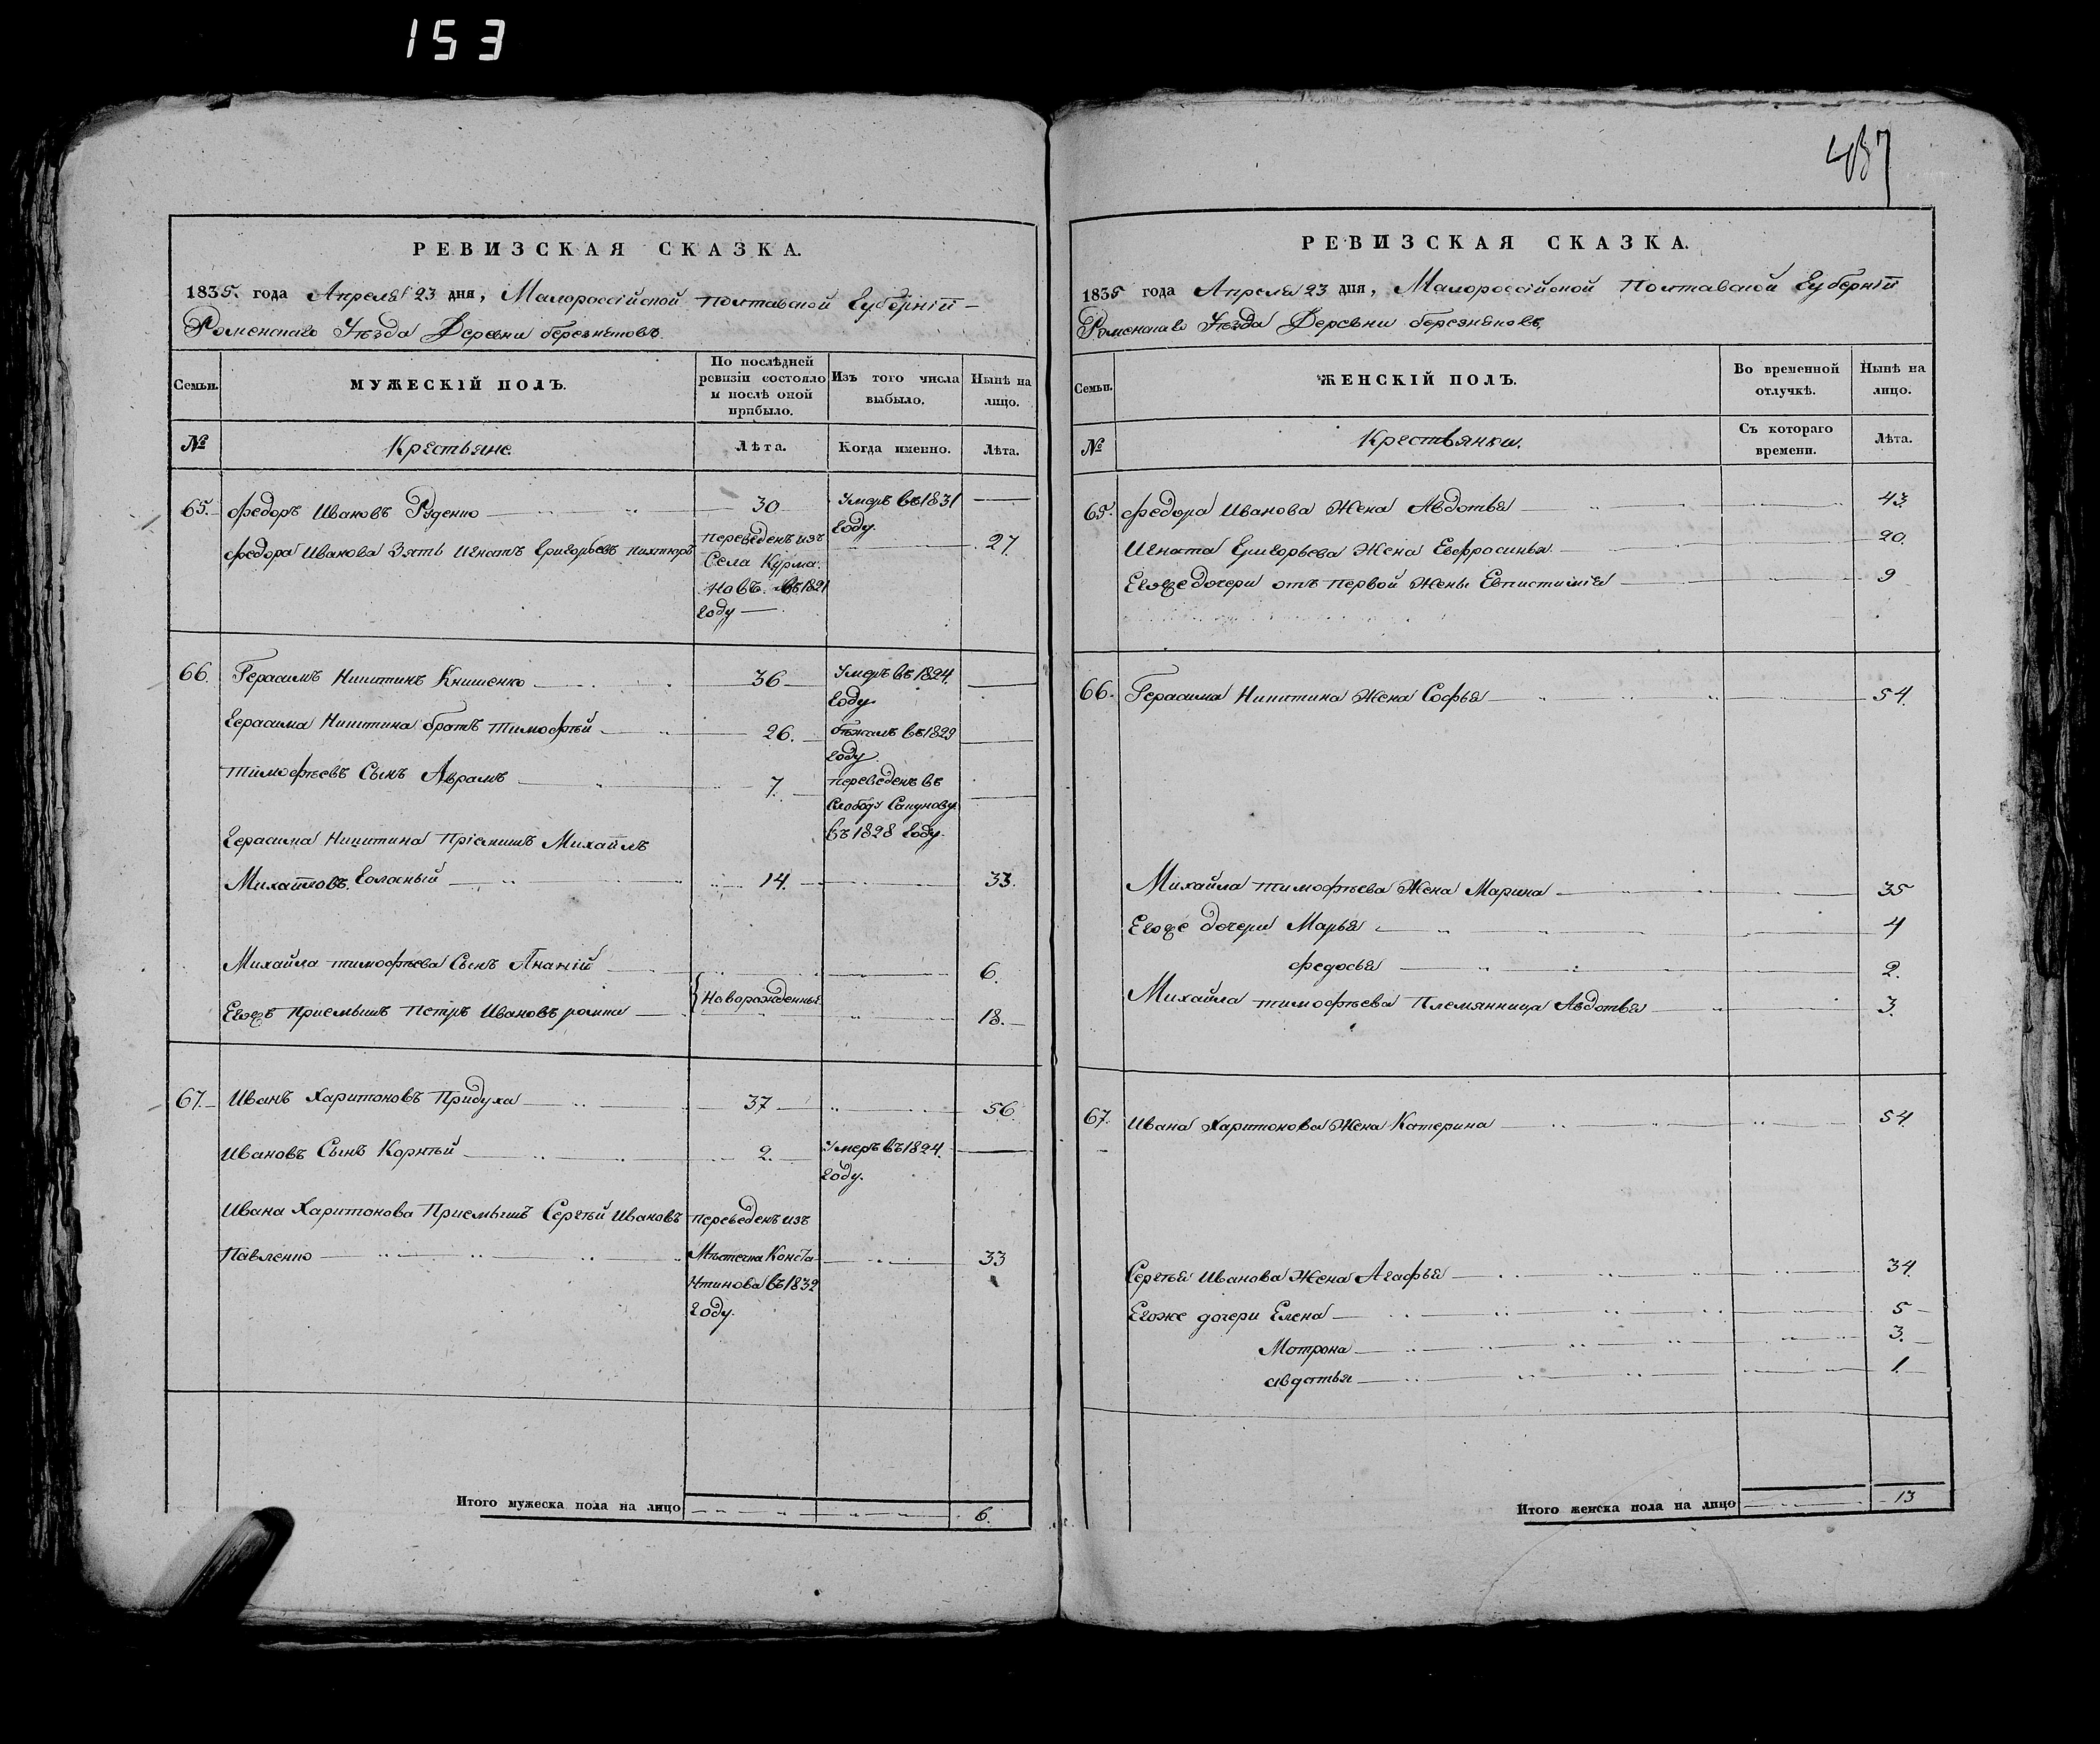 153
487
РЕВИЗСКАЯ СКАЗКА.
1835. года Апреля 23 дня, Малороссійской Полтавской Губерніи
Роменскаго Уѣзда Деревни березняковъ.
Семьи. МУЖЕСКІЙ ПОЛЪ. По послѣдней ревизіи состояло и послѣ оной прибыло. Изъ того числа выбыло. Нынѣ на лицо.
№ Крестьяне Лѣта. Когда именно. Лѣта.
65. Федоръ Ивановъ Руденко 30 Умеръ въ 1831 году
Федора Иванова Зять Игнатъ Григорьевъ переведенъ изъ 27.
Села Курма
новъ въ 1821
году
66. Герасимъ Никитинъ Книшенко 36 Умеръ въ 1824. году
Герасима Никитина братъ Тимофѣй 26. бѣжалъ въ 1829 году
Тимофѣевъ Сынъ Аврамъ 7. переведенъ въ
Слободу Сакунову
въ 1828 году.
Герасима Никитина Пріемышъ Михайлъ
Михайловъ 14. 33.
Михайла Тимофѣева Сынъ Ананій 6.
Новорожденные
Егожъ Приемышъ Петръ Ивановъ 18.
67. Иванъ Харитоновъ Придуха 37 56.
Ивановъ Сынъ Корнѣй 2. Умеръ въ 1824. году.
Ивана Харитонова Приемышъ Сергѣй Ивановъ переведенъ изъ
Павленко Мѣстечка Конста 33
нтинова въ 1832
году.
Итого мужеска пола на лицо 6.
РЕВИЗСКАЯ СКАЗКА.
1835 года Апреля 23 дня, Малороссійской Полтавской Губерніи
Роменскаго Уѣзда Деревни березняковъ.
Семьи. ЖЕНСКІЙ ПОЛЪ. Во временной отлучкѣ. Нынѣ на лицо.
№ Крестьянки. Съ котораго времени. Лѣта.
65. Федора Иванова Жена Авдотья 43.
Игната Григорьева Жена Евфросинья 20.
Егоже дочери отъ первой Жены Евпистимія 9
66. Герасима Никитина Жена Софья 54.
Михайла Тимофѣева Жена Марина 35
Егоже дочери Марья 4
Федосья 2.
Михайла Тимофѣева Племянница Авдотья 3.
67. Ивана Харитонова Жена Катерина 54
Сергѣя Иванова Жена Агафья 34.
Егоже дочери Елена 5
Мотрона 3.
Авдотья 1.
Итого женска пола на лицо 13